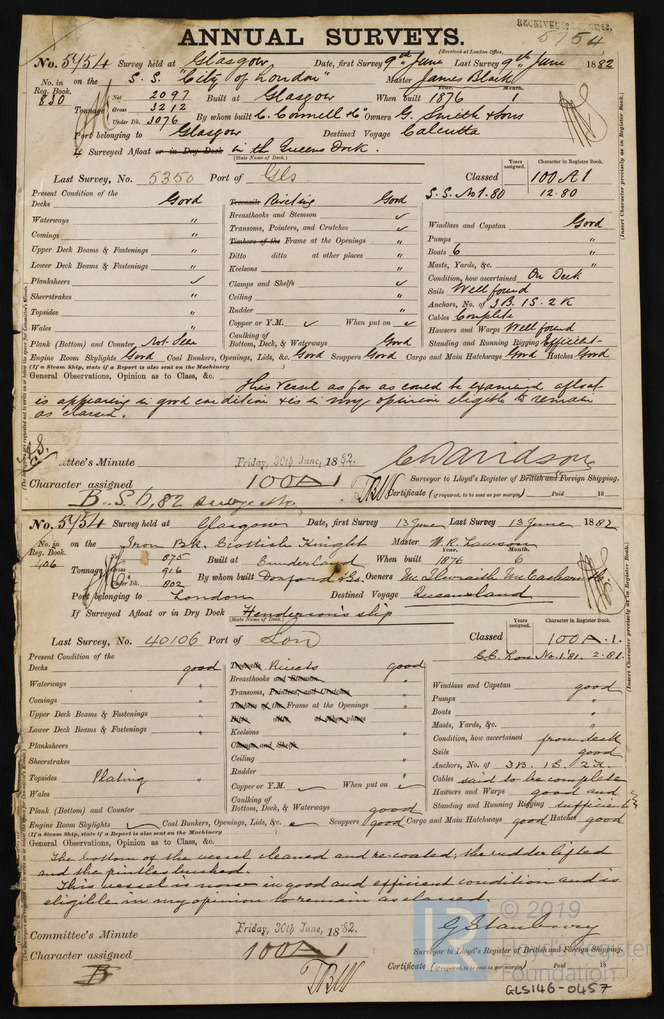 RECEIVED
5754
ANNUAL SURVEYS.
(Received at London Office,
No. 5754 Survey held at Glasgow Date, first Survey 9th June Last Survey 9th June 1882
No. in Reg. Book. 830 on the S.S. "City of London" Master James Black
Tonnage Net 2097 Built at Glasgow When built Year. 1876 Month. 1
Gross 3212
Under Dk. 3076 By whom built C. Connell & Co Owners G. Smith & Sons
Port belonging to Glasgow Destined Voyage Calcutta
If Surveyed Afloat or in Dry Dock in the Queens Dock.
(State Name of Dock.)
Last Survey, No. 5350 Port of Gls Classed Years assigned. Character in Register Book. 100 A1
S.S. No1.80 12.80
Present Condition of the
Decks Good Treenails Riveting Good
Waterways " Breasthooks and Stemson Windlass and Capstan Good
Comings " Transoms, Pointers, and Crutches Pumps "
Upper Deck Beams & Fastenings " Timbers of the Frame at the Openings " Boats 6 "
Lower Deck Beams & Fastenings " Ditto ditto at other places " Masts, Yards, &c. "
Planksheers Keelsons " Condition, how ascertained On Deck
Sheerstrakes " Clamps and Shelfs Sails Well found
Topsides " Ceiling " Anchors, No. of 3B. 1S. 2K
Wales " Rudder " Cables Complete
Plank (Bottom) and Counter Not Seen Copper or Y.M. When put on Hawsers and Warps Well found
Caulking of Bottom, Deck, & Waterways Good Standing and Running Rigging Efficient
Engine Room Skylights Good Coal Bunkers, Openings, Lids, &c. Good Scuppers Good Cargo and Main Hatchways Good Hatches Good
(If a Steam Ship, state if a Report is also sent on the Machinery
General Observations, Opinion as to Class, &c.
This vessel as far as could be examined afloat
is appearing in good condition & is in my opinion eligible to remain
as classed.
Committee's Minute Friday, 30th June, 1882. C. Davidson
Character assigned 100A1 Surveyor to Lloyd's Register of British and Foreign Shipping.
B. S. 6,82 subject to Certificate (if required, to be sent as per margin) Paid 18
(Insert Character precisely as in Register Book.)
No. 5754 Survey held at Glasgow Date, first Survey 13 June Last Survey 13 June 1882
No. in Reg. Book. 406 on the Iron Bk. Scottish Knight Master W. R. Lawson
Tonnage Net 875 Built at Sunderland When built Year. 1876 Month. 6
Gross 916
Under Dk. 802 By whom built Doxford & Co. Owners McIlwraith McEacharn & Co.
Port belonging to London Destined Voyage Queensland
If Surveyed Afloat or in Dry Dock Henderson's slip
(State Name of Dock.)
Last Survey, No. 40106 Port of Lon Classed Years assigned. Character in Register Book. 100 A.1.
No.1.81. 2.81
Present Condition of the
Decks good Treenails Rivets good
Waterways " Breasthooks and Stemson " Windlass and Capstan good
Comings " Transoms, Pointers, and Crutches " Pumps "
Upper Deck Beams & Fastenings " Timbers of the Frame at the Openings " Boats "
Lower Deck Beams & Fastenings " Ditto ditto at other places Masts, Yards, &c. "
Planksheers Keelsons " Condition, how ascertained from deck
Sheerstrakes Clamps and Shelfs Sails good
Topsides Plating " Ceiling " Anchors, No. of 3B. 1S. 2K.
Wales Rudder " Cables said to be complete
Plank (Bottom) and Counter Copper or Y.M. When put on Hawsers and Warps good and
Caulking of Bottom, Deck, & Waterways good Standing and Running Rigging sufficient
Engine Room Skylights Coal Bunkers, Openings, Lids, &c. Scuppers good Cargo and Main Hatchways good Hatches good
(If a Steam Ship, state if a Report is also sent on the Machinery
General Observations, Opinion as to Class, &c.
The bottom of the vessel cleaned and re-coated, the rudder lifted
and the pintles bushed.
This vessel is now in good and efficient condition and is
eligible in my opinion to remain as classed.
Committee's Minute Friday, 30th June, 1882.
Character assigned 100A1 Surveyor to Lloyd's Register of British and Foreign Shipping.
Certificate (if required, to be sent as per margin) Paid 18
(Insert Character precisely as in Register Book.)
© 2019
Lloyd's Register
Foundation
GLS146-0457